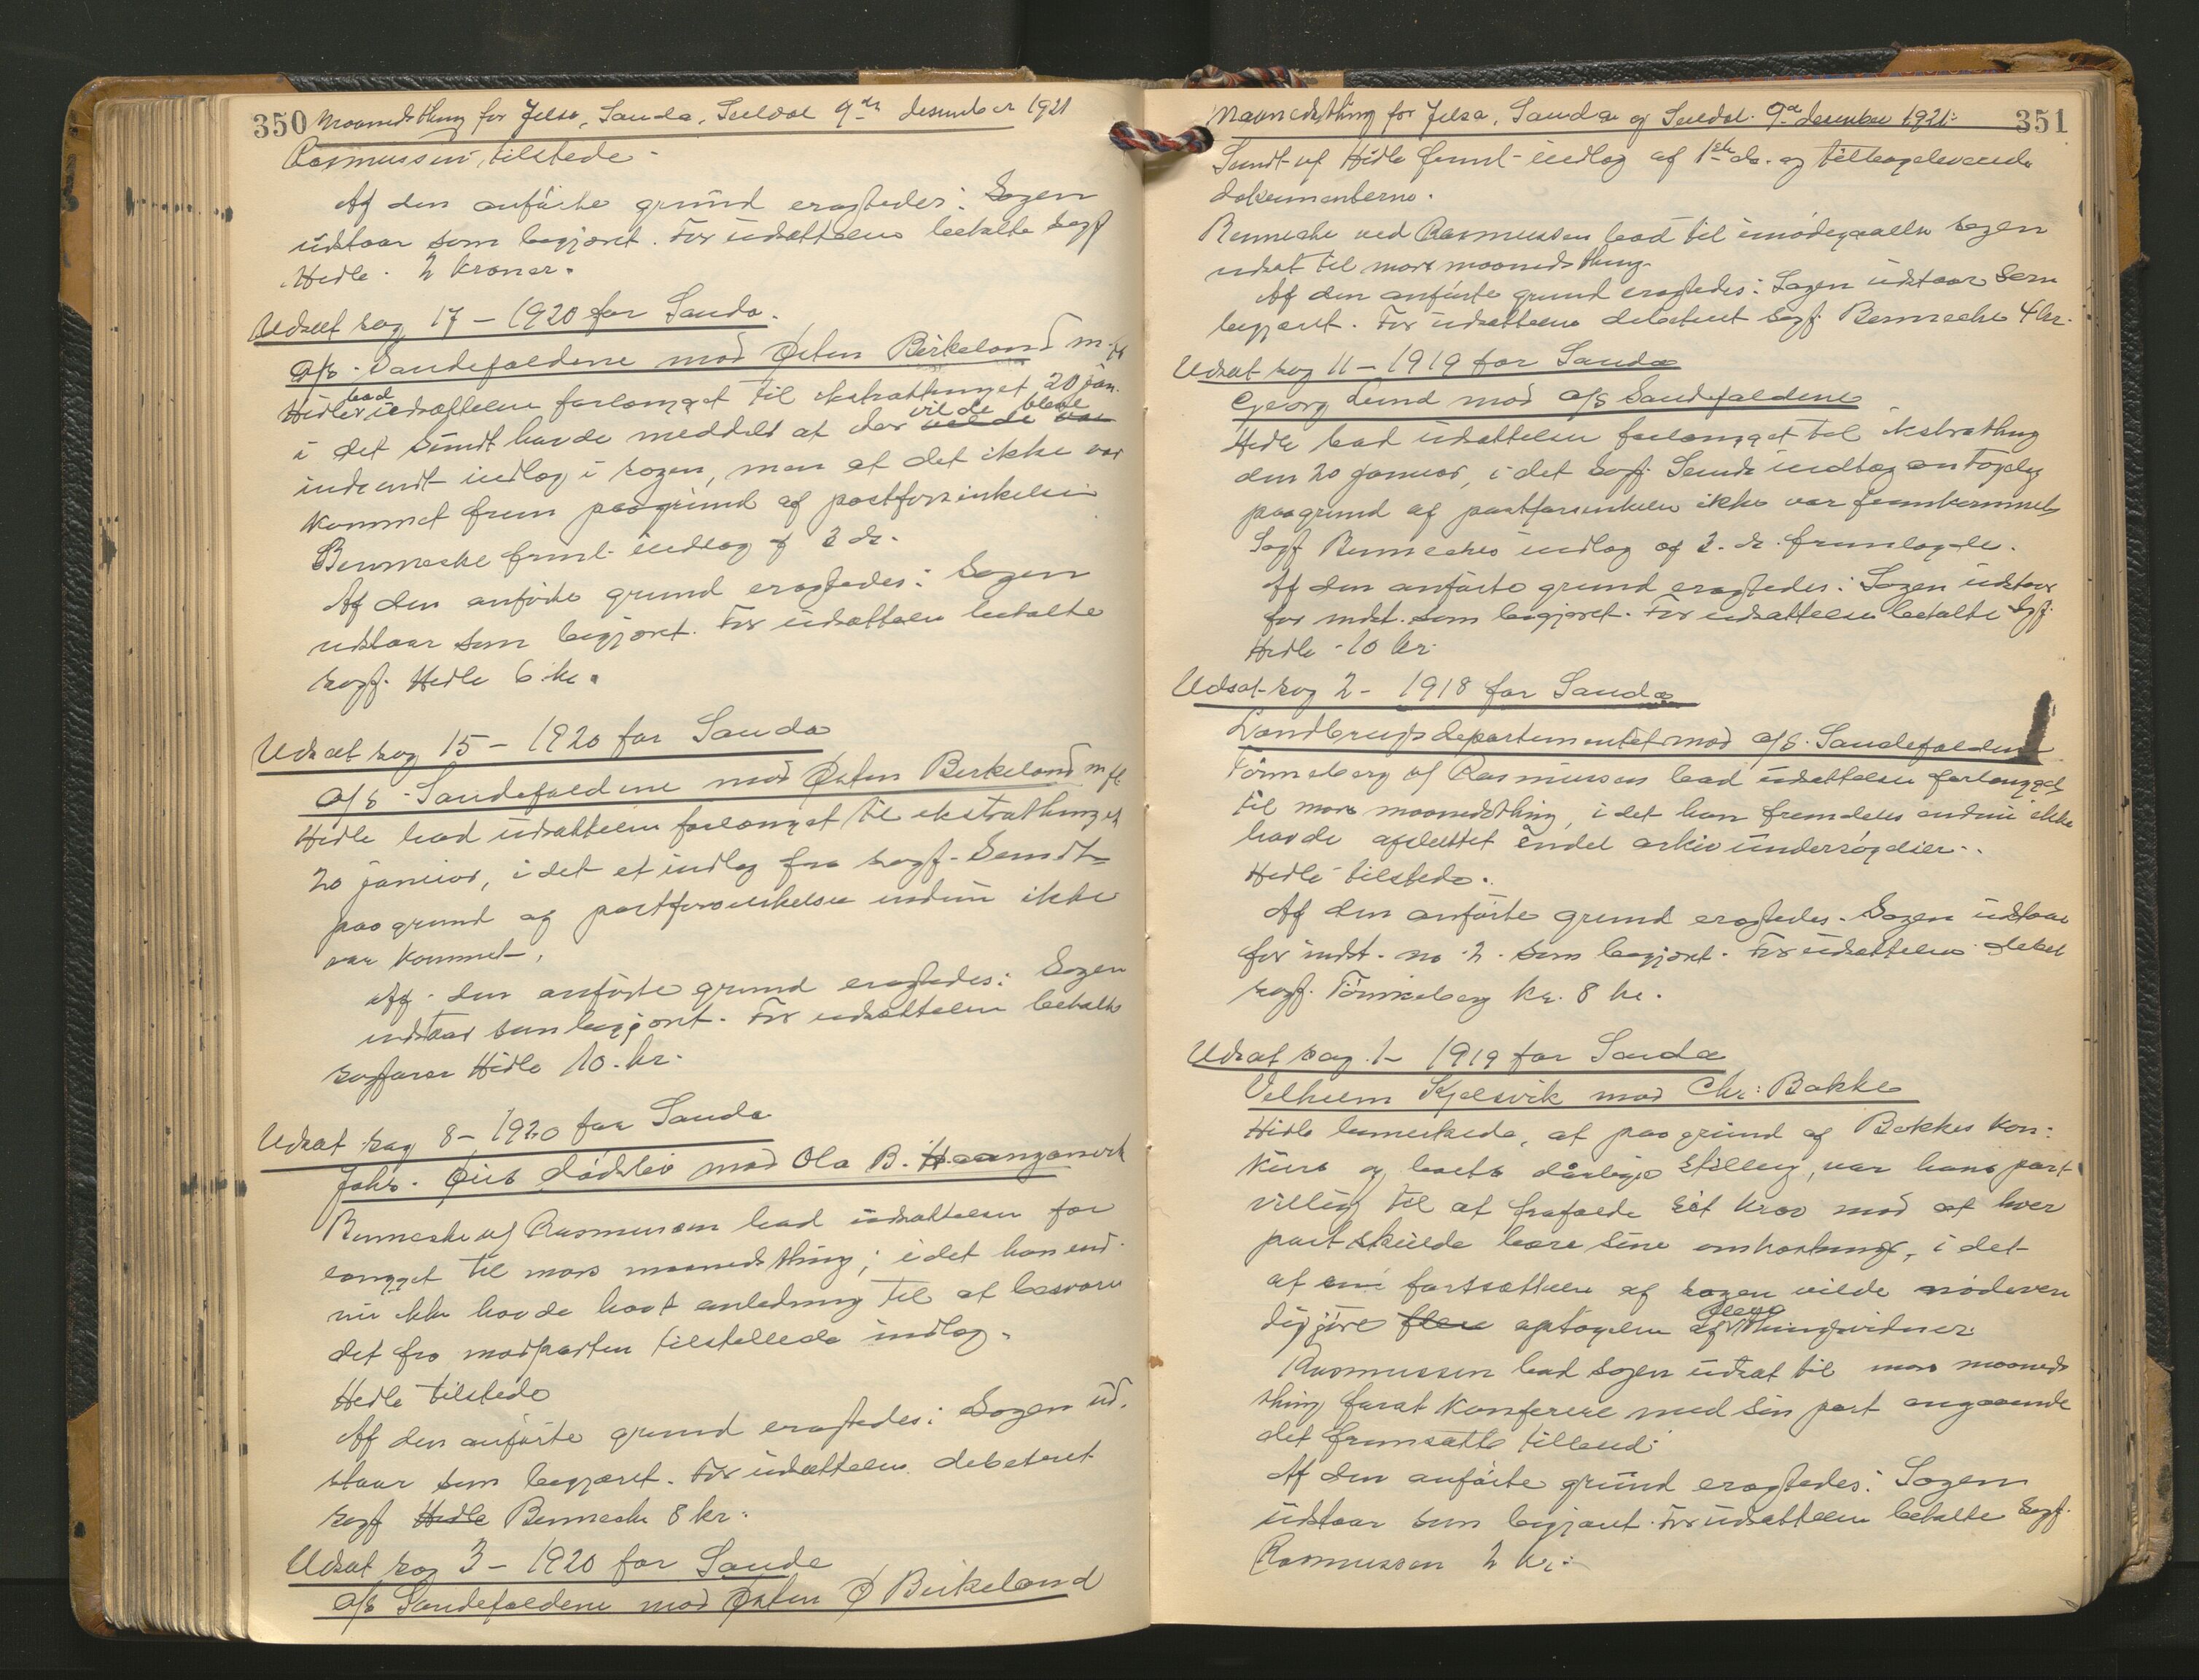 350 Maanedsthing for Jelsa, Sauda, Suldal 9de desember 1921
Rasmussen tilstede.
Af den anførte grund eragtedes: Sagen
udstaar som begjæret. For udsættelsen betalte sagf
Hidle 2 kroner.
Udsat sag 17 – 1920 for Sauda.
A/s. Saudefaldene mod Østen Birkeland m. fl
Hidle bad udsættelsen forlænget til ekstrathinget 20 jan.
i det Sundt havde meddelt at der vilde blive
indsendt indlæg i sagen, men at det ikke var
kommet frem paagrund af postforsinkelse
Bennecke freml. indlæg af 3 ds.
Af den anførte grund eragtedes: Sagen
udstaar som begjæret. For udsættelsen betalte
sagf. Hidle 6 kr.
Udsat sag 15 – 1920 for Sauda
A/s Saudefaldene mod Østen Birkeland m fl.
Hidle bad udsættelsen forlænget til ekstrathinget
20 januar, i det et indlæg fra sagf. Sundt
paa grund af postforsinkelse endnu ikke
var kommet.
Af den anførte grund eragtedes: Sagen
udstaar som begjæret. For udsættelsen betalte
sagfører Hidle 10 kr.
Udsat sag 8 – 1920 for Sauda
Johs. Øies dødsbo mod Ola B.
Bennecke v/ Rasmussen bad udsættelsen for
længet til mars maanedsthing, i det han end
nu ikke havde havt anledning til at besvare
det fra modparten tilstillede indlæg.
Hidle tilstede
Af den anførte grund eragtedes: Sagen ud.
staar som begjæret. For udsættelsen debeteret
sagf Hidle Bennecke 8 kr.
Udsat sag 3 – 1920 for Sauda
A/s Saudefaldene mod Østen Ø Birkeland
Maanedsthing for Jelsa, Sauda og Suldal. 9de desember 1921. 351
Sundt v/ Hidle freml. indlæg af 1ste ds. og tilbageleverede
dokumenterne.
Bennecke ved Rasmussen bad til imødegaaelse sagen
udsat til mars maanedsthing.
Af den anførte grund eragtedes: Sagen udstaar som
begjæret. For udsættelsen debeteret sagf. Bennecke 4 kr.
Udsat sag 11 – 1919 for Sauda
Georg Lund mod A/s Saudefaldene
Hidle bad udsættelsen forlænget til ekstrathing
den 20 januar, i det sagf. Sundts indlæg antagelig
paagrund af postforsinkelse ikke var fremkommet
Sagf. Benneckes indlæg af 3. ds. fremlagdes.
Af den anførte grund eragtedes: Sagen udstaar
for indst. som begjæret. For udsættelsen betalte sagf.
Hidle 10 kr.
Udsat sag 2 – 1918 for Sauda
Landbrugsdepartementet mod A/s. Saudefaldene
Tønnesberg v/ Rasmussen bad udsættelsen forlænget
til mars maanedsthing, i det han fremdeles endnu ikke
havde afsluttet endel arkivundersøgelser.
Hidle tilstede.
Af den anførte grund eragtedes. Sagen udstaar
for indst. no 2. som begjæret. For udsættelsen debet
sagf. Tønnesberg kr. 8 kr.
Udsat sag 1 – 1919 for Sauda
Vilhelm Kjelsvik mod Chr. Bakke
Hidle bemerkede, at paa grund af Bakkes kon-
kurs og boets dårlige stilling, var hans part
villig til at frafalde sit krav mod at hver
part skulde bære sine omkostninger, i det
at en fortsættelse af sagen vilde nødven
diggjøre flere optagelse af flere thingsvidner.
Rasmussen bad sagen udsat til mars maaneds
thing forat konferere med sin part angaaende
det fremsatte tilbud.
Af den anførte grund eragtedes: Sagen
udstaar som begjæret. For udsættelsen betalte sagf.
Rasmussen 2 kr.